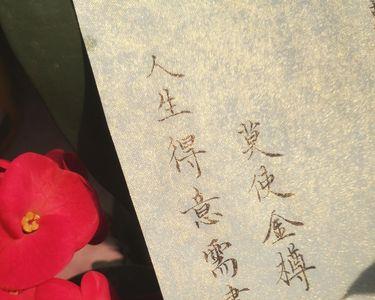 人生得意需
莫使金樽